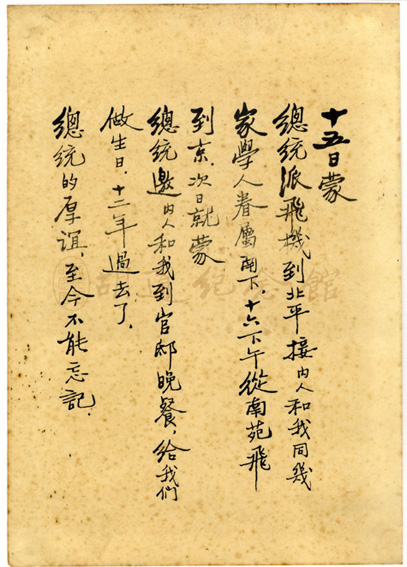 十五日蒙
總統派飛機到北平接內人和我同幾
家學人眷屬南下。十六下午從南苑飛
到京。次日就蒙
總統邀內人和我到官邸晚餐，給我們
做生日。十二年過去了，
總統的厚誼，至今不能忘記。
胡適紀念館